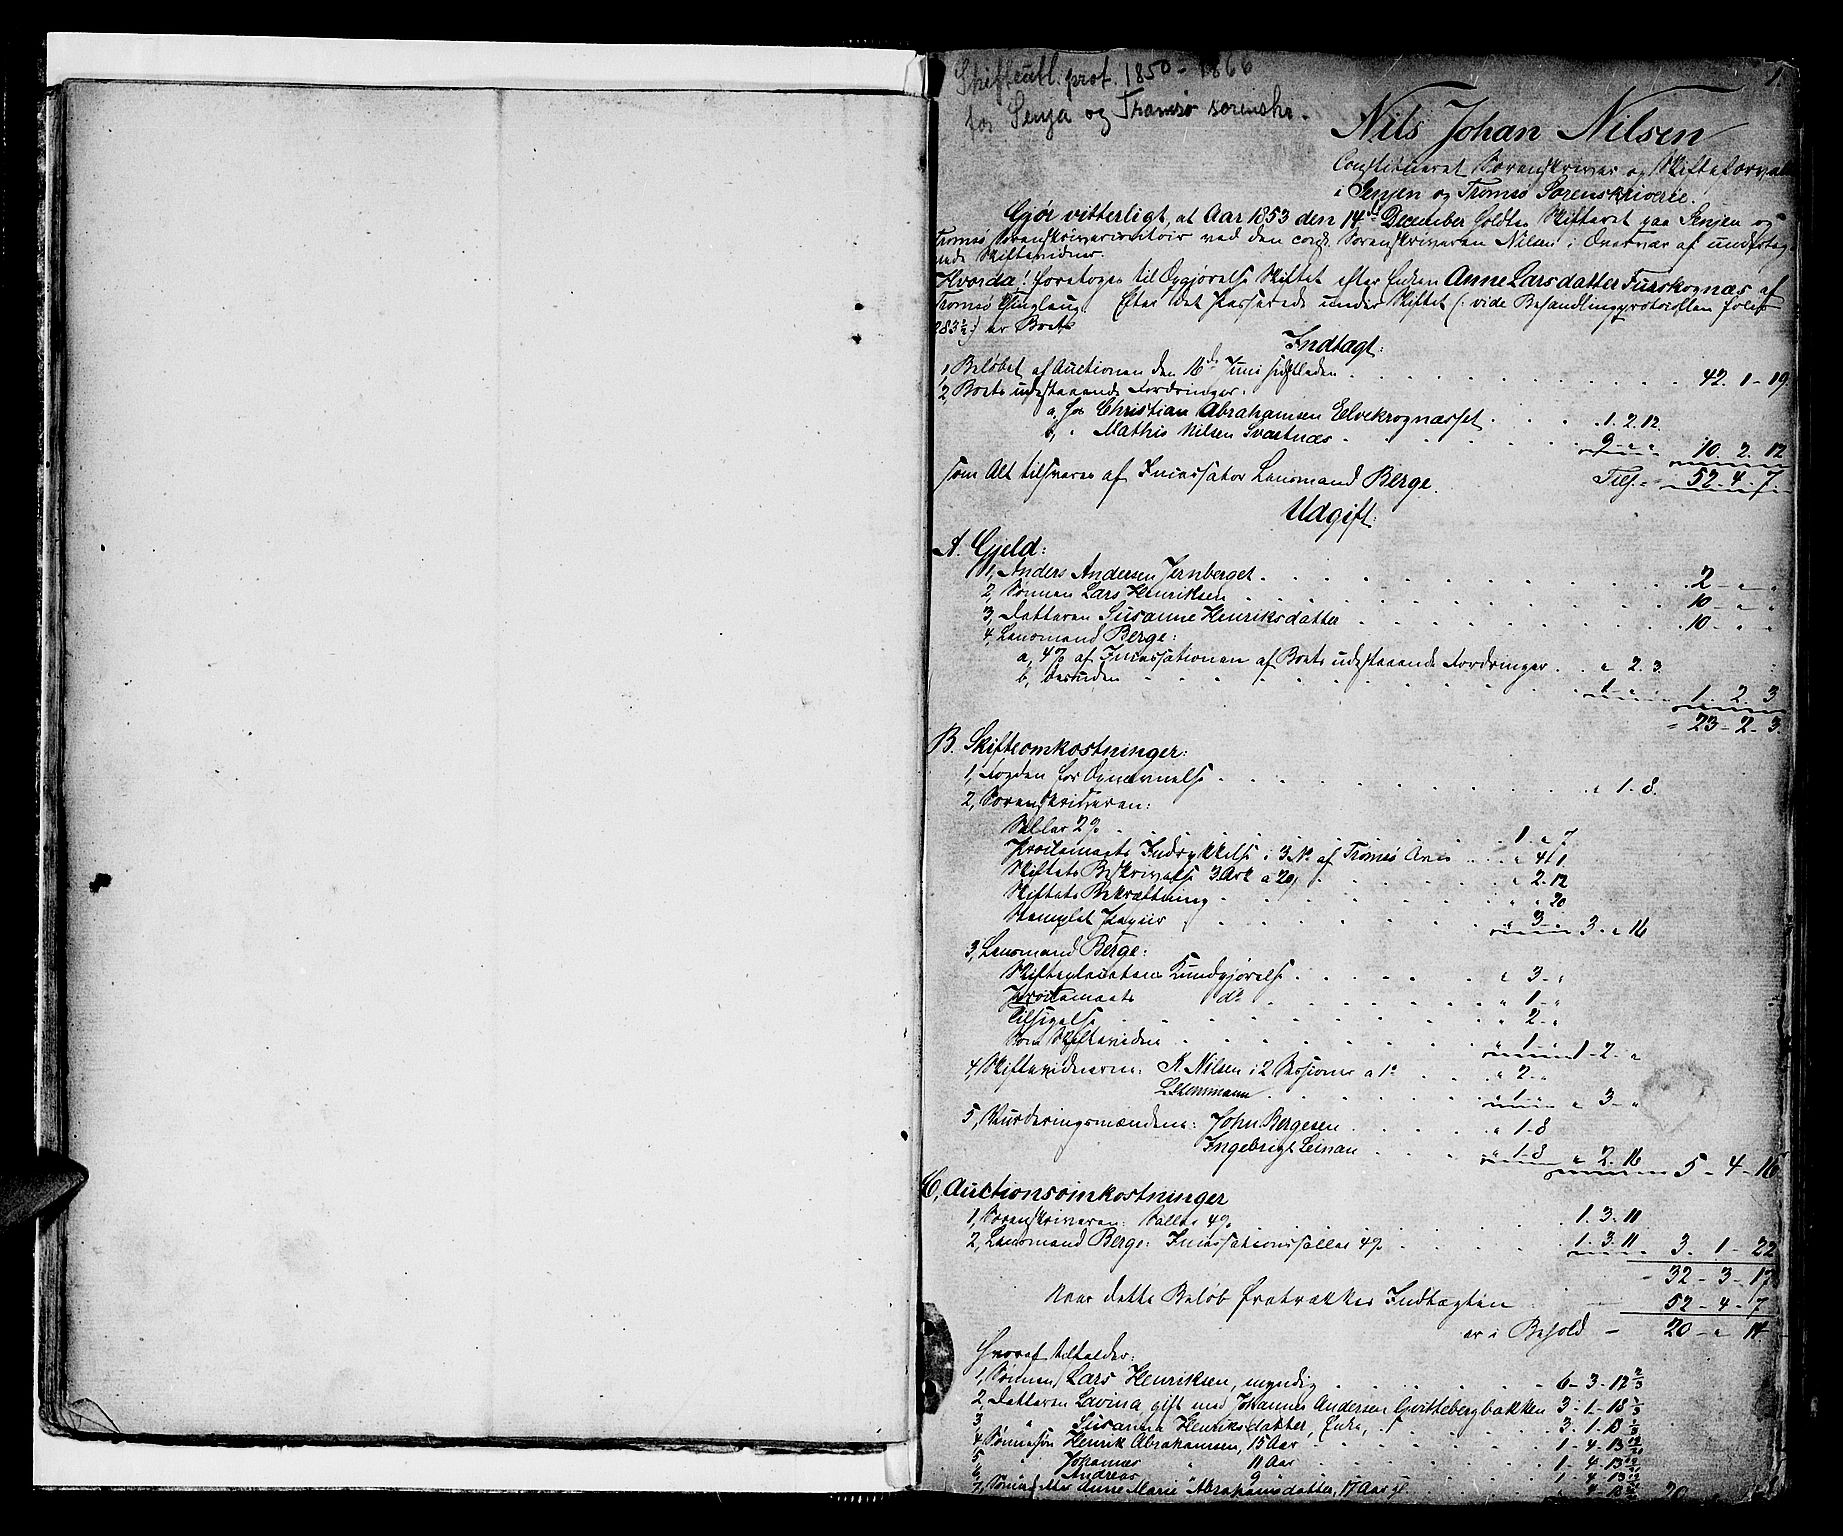 Skifteutl. prot. 1850-1866
for Senja og Tromsø sorenskr.
1.
Nils Johan Nilsen
Constitueret Sorenskriver og Skifteforval
i Senjen og Tromsø Sorenskriverie.
Gjør vitterligt, at Aar 1853 den 14de December holdtes Skifteret paa Senjen og
Tromsø Sorenskrivercontoir ved den const. Sorenskriveren Nilsen i Overvær af underteg-
nede Skiftevidner.
Hvorda! foretoges til Opgjørelse Skiftet efter Enken Anne Larsdatter af
Tromsø Thinglaug. Efter det Passerede under Skiftet (: vide Behandlingsprotocollen folio
283½:) er Boets
Indtægt:
1, Beløbet af Auctionen den 16de Juni sidstleden . . . 42. 1 - 19.
2, Boets udestaaende Fordringer.
a, hos Christian Abrahamsen Elvekrognæsset . . . 1. 2. 12.
b, " Mathis Nilsen Svartnæs . . . 9 - " " 10. 2. 12
som Alt tilsvares af Incassator Lensmand Berge. Tils. - 52. 4. 7.
Udgift:
A. Gjeld:
1, Anders Andersen Jernberget . . . 2 - " "
2, Sønnen Lars Henriksen . . . 10 - " "
3, Datteren Susanne Henriksdatter . . . 10 - " "
4, Lensmand Berge:
a, 4% af Incassationen af Boets udestaaende Fordringer . . " 2. 3.
b, desuden . . . 1 " " 1. 2. 3
- 23 - 2 - 3.
B. Skifteomkostninger:
1, Fogden for Opnævnelse . . . " 1. 8.
2, Sorenskriveren:
Sallar 2% . . . 1. " 7
Proclamaets Indrykkelse i 3 No af Tromsø Avis . . .
Skiftets Beskrivelse 3 Ark a 20 . . . " 2. 12
Skiftets Bekræftning . . . " " 20
Stemplet Papir . . . " 3 - " 3. " 16
3, Lensmand Berge:
Skifteplacatens Kundgjørelse . . . " 3 - "
Proclamaets do . . . " 1 - "
Tilsigelse . . . " 2 - "
Som Skiftevidne . . . " 1 - " 1 - 2 - "
4, Skiftevidnerne: N. Nilsen i 2 Sessioner a 1 . . . " 2 - "
. . . " 1 - " " 3 - "
5, Vurderingsmændene: John Bergesen . . . " 1 - 8
Ingebrigt Leinan . . . " 1 - 8 " 2. 16 5 - 4 - 16
C, Auctionsomkostninger
1, Sorenskriveren: Sallar 4% . . . 1. 3. 11
2, Lensmand Berge: Incassationssallar 4% . . . 1. 3. 11 3. 1 - 22
- 32 - 3 - 17
Naar dette Beløb fratrækkes Indtægten . . . 52 - 4 - 7
er i Behold - 20 - " 14 -
hvoraf tilfalder:
1, Sønnen Lars Henriksen, myndig . . . 6 - 3 - 12 2/3
2, Datteren Lavina gift med Johannes Andersen Qvittebergbakken 3 - 1 - 18 1/3
3 " Susanna Henriksdatter, Enke, . . . 3. 1. 18 1/3
4 Sønnesøn Henrik Abrahamsen, 15 Aar . . . 1 - 4 - 13
5 " Johannes " 11 Aar . . . 1 - 4 - 13
6 " Andreas " 9 " . . . 1 - 4 - 13
7, Sønnedatter Anne Marie Abrahamsdatter, 17 Aar